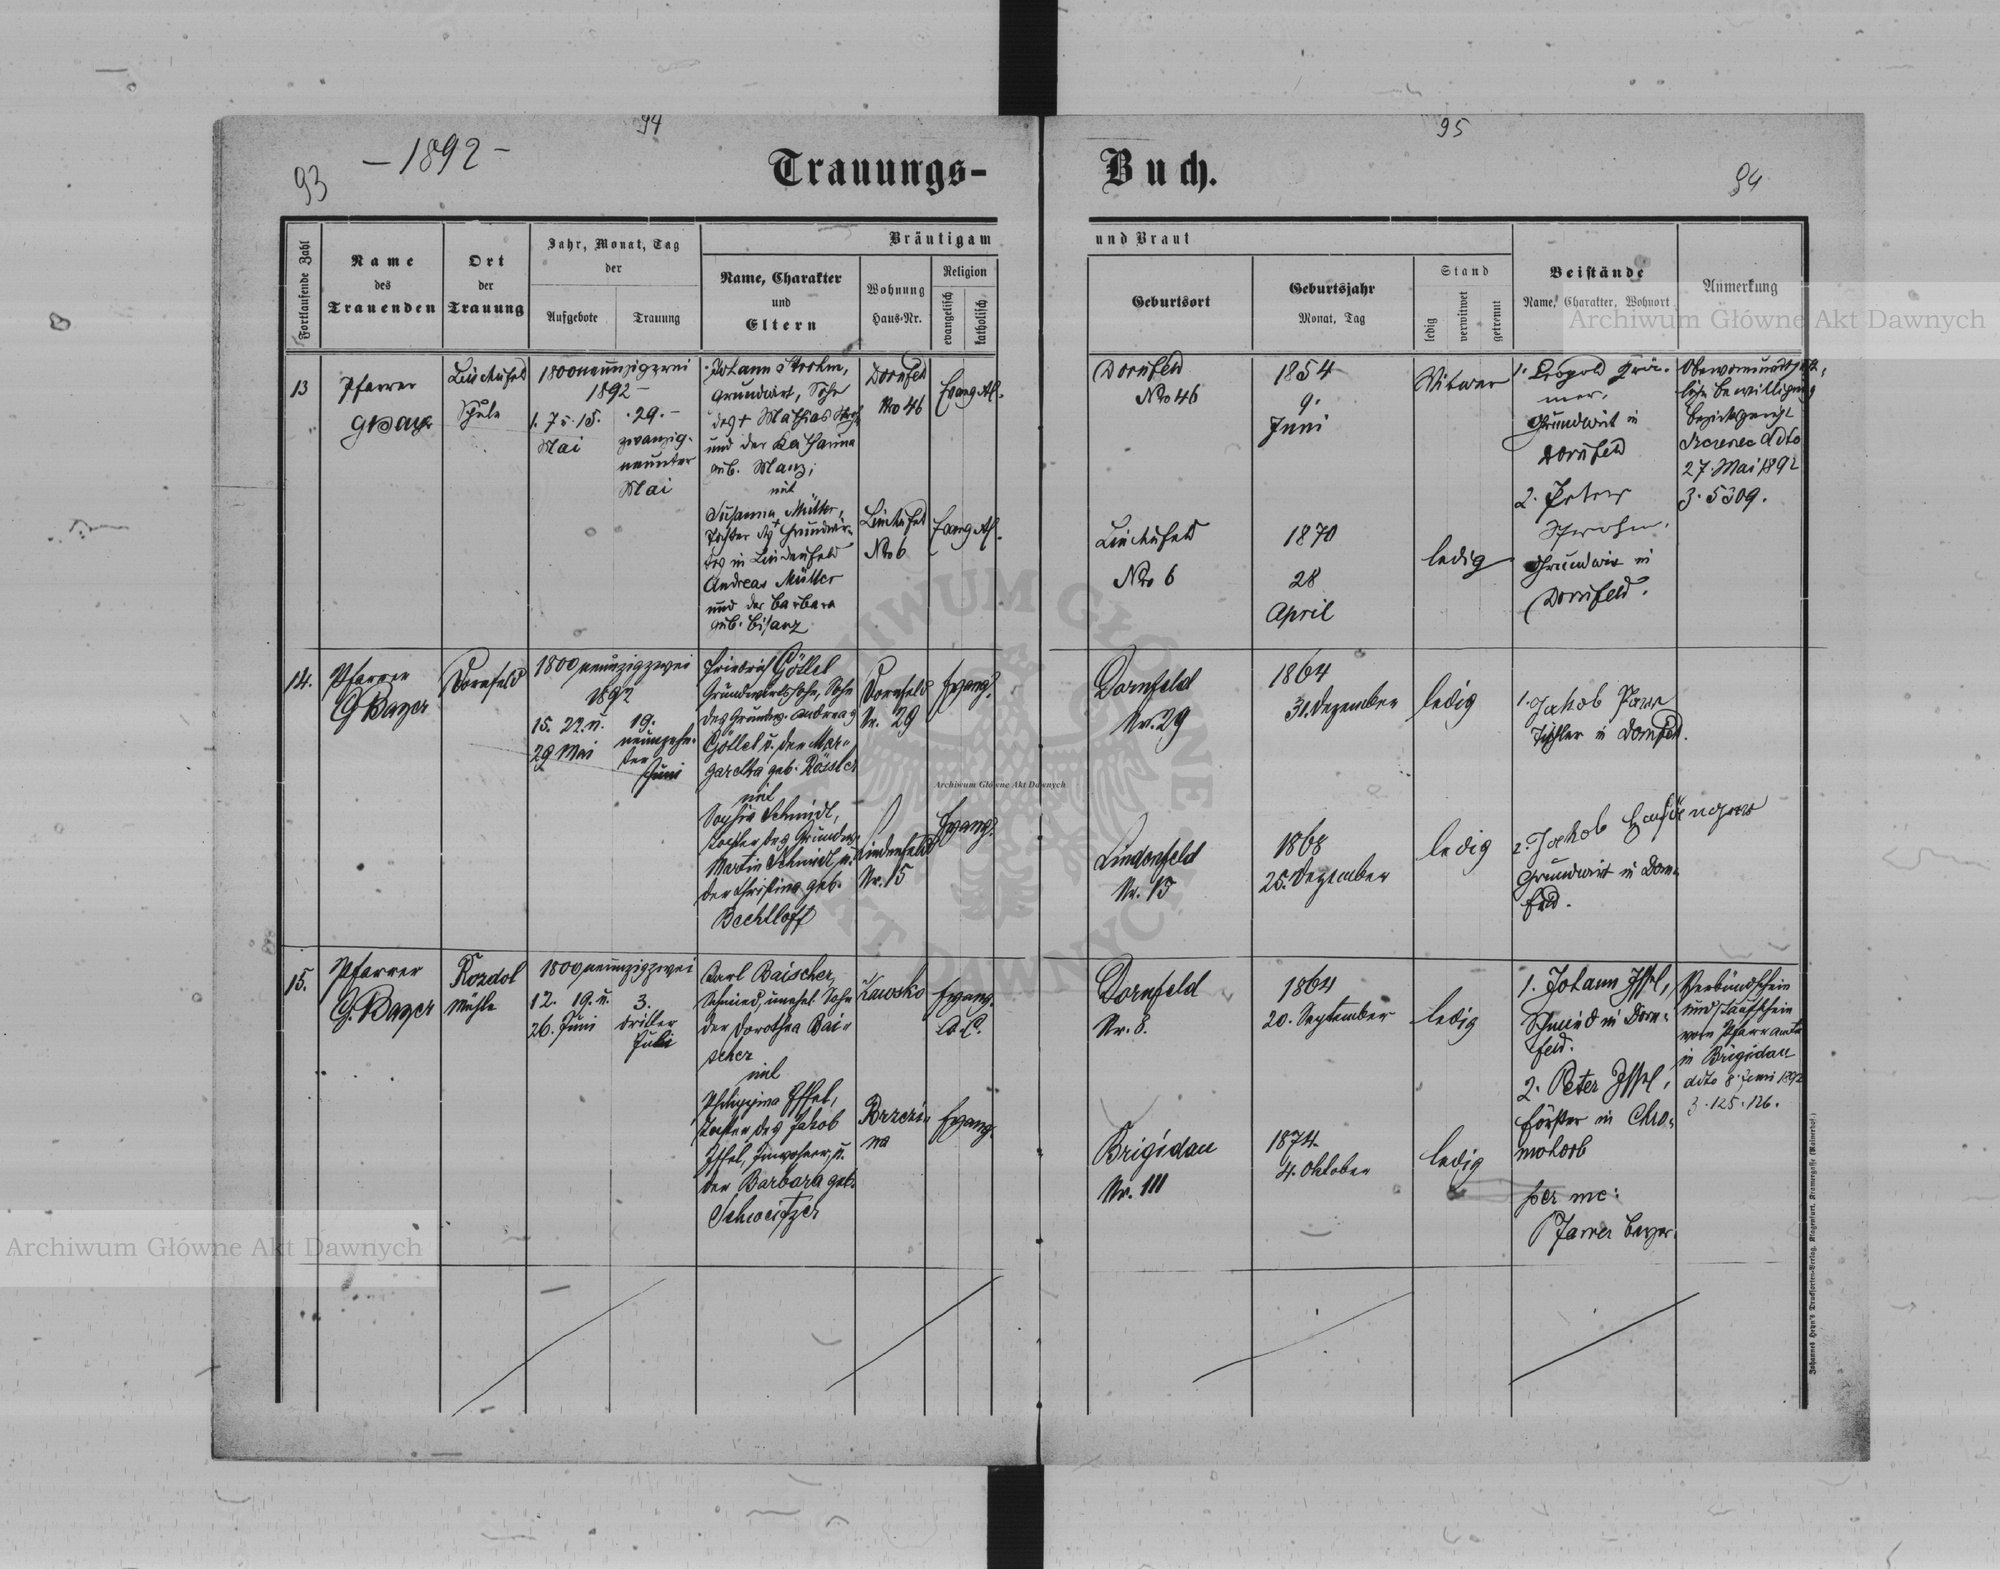 94
95
93
- 1892 -
Trauungs-
Buch.
94
Fortlaufende Zahl
Name
des
Trauenden
Ort
der
Trauung
Jahr, Monat, Tag
der
Aufgebote
Trauung
Bräutigam
und Braut
Name, Charakter
und
Eltern
Wohnung
Haus-Nr.
Religion
evangelisch
katholisch
Geburtsort
Geburtsjahr
Monat, Tag
Stand
ledig
verwitwet
getrennt
Beistände
Name, Charakter, Wohnort
Anmerkung
13
Pfarrer
Schule
1892
Mai
29.
zwanzig-
neunter
Mai
Johann Strohm,
Grundwirt, Sohn
des + Mathias
und der Katharina
geb. Manz;
mit
Susanna Müller,
Tochter des + Grundwir-
tes in Lindenfeld
Andreas Müller
und der Barbara
geb. Bisanz
Dornfeld
No 46
Lindenfeld
No 6
Dornfeld
No 46
Lindenfeld
No 6
1854
9.
Juni
1870
28
April
Witwer
ledig
1. Leopold
Grundwirt in
Dornfeld
2. Peter
Strohm,
Grundwirt in
Dornfeld.
27. Mai 1892
Z. 5309.
14.
Pfarrer
G Bayer
Dornfeld
1800neunzigzwei
1892
15. 22. u.
29 Mai
19.
neunzehn-
ter
Juni
Friedrich Göttel
Grundwirtssohn, Sohn
des Grundw. Andreas
Göttel u. der Mar-
garetha geb. Rössler
mit
Sophie Schmidt,
Tochter des Grundw.
Martin Schmidt u.
der Christina geb.
Bechtloff
Dornfeld
Nr. 29
Lindenfeld
Nr. 15
Evang.
Evang.
Dornfeld
Nr. 29
Lindenfeld
Nr. 15
1864
31. Dezember
1868
25. Dezember
ledig
ledig
1. Jakob
Tischler in Dornfeld.
2. Jakob
Grundwirt in Dorn-
feld.
15.
Pfarrer
G. Bayer
Rozdol
Mühle
1800neunzigzwei
12. 19. u.
26. Juni
3.
dritter
Juli
Karl Baischer,
Schmied, unehel. Sohn
der Dorothea Bai-
scher
mit
Philippina Issel,
Tochter des Jakob
Issel, Einwohner, u.
der Barbara geb.
Schweitzer
Brzezi-
na
Evang.
A. C.
Evang.
Dornfeld
Nr. 8.
Brigidau
Nr. 111
1864
20. September
1874.
4. Oktober
ledig
ledig
1. Johann Issel,
Schmied in Dorn-
feld.
2. Peter Issel,
Förster in Chro-
mohorb
per me:
Pfarrer Bayer.
Verkündschein
und Taufschein
vom Pfarramte
in Brigidau
ddto 8. Juni 1892
Z. 125. 126.
Johannes Heyn's Drucksorten-Verlag, Klagenfurt, Kramergasse (Rainerhof.)
Archiwum Główne Akt Dawnych
Archiwum Główne Akt Dawnych
Archiwum Główne Akt Dawnych
ARCHIWUM GŁÓWNE AKT DAWNYCH